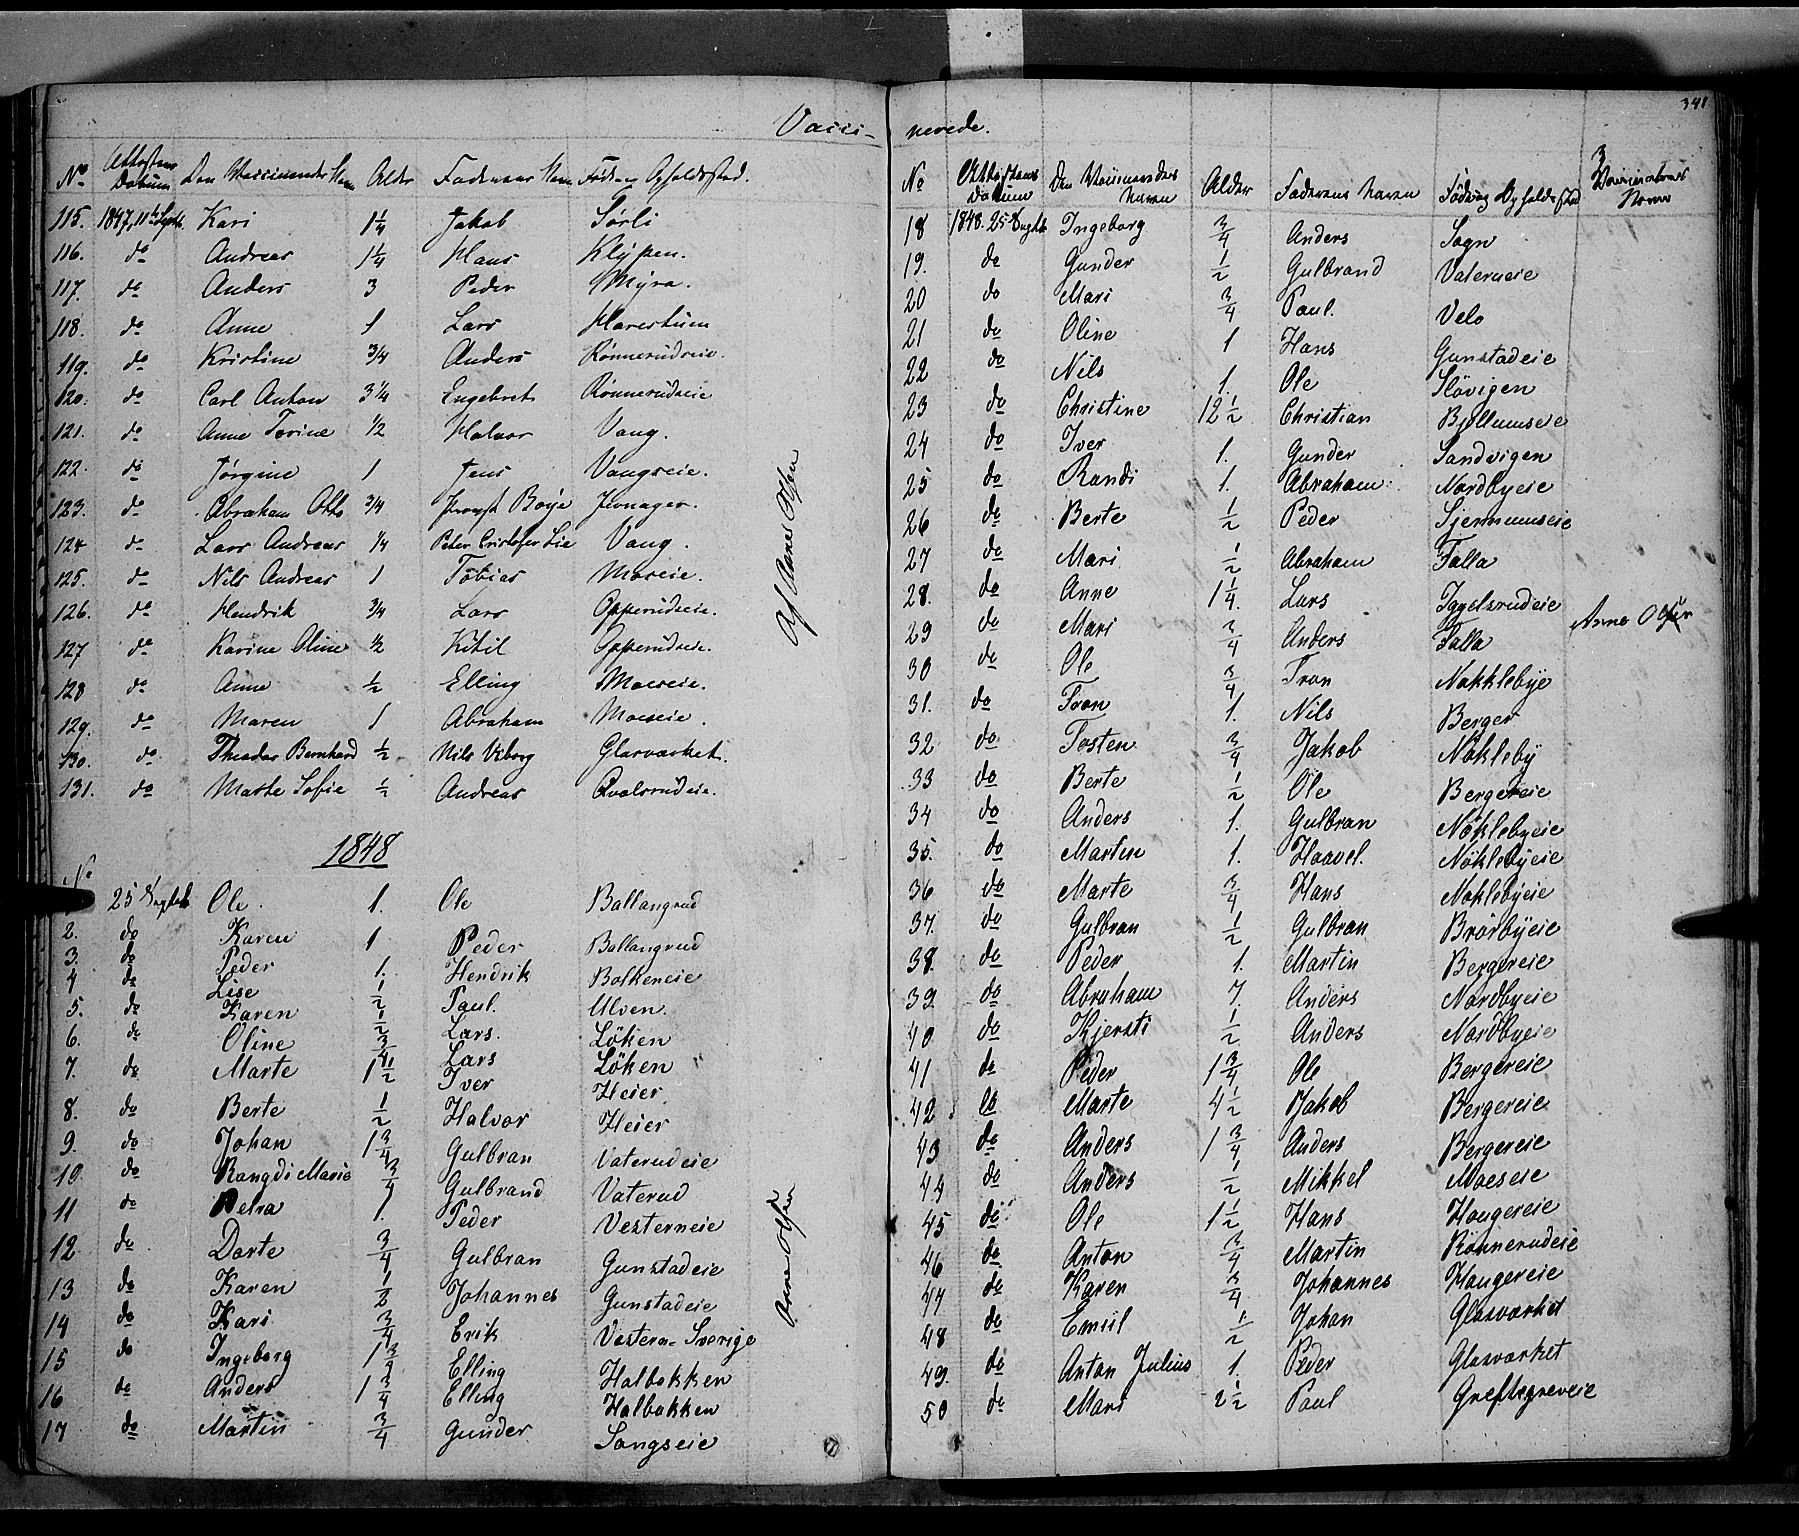 Vacci-
No Attestens Datum Den Vaccinerendes Navn Alder Faderens Navn Føde og Opholdssted.
115. 1847, 11te Septbr. Kari 1 1/4 Jakob Sørli
116. do Andreas 1 1/4 Hans Klypen.
117. do Anders 3 Peder Myra.
118. do Anne 1 Lars Harestuen
119. do Kristine 3/4 Anders Rønnerudseie.
120. do Carl Anton 3 1/4 Engebret Rønnerudseie
121. do Anne Torine 1/2 Halvor Vang.
122. do Jørgine 1 Jens Vangseie.
123. do Abraham Otto 3/4 Provst Boye Jevnager.
124 do Lars Andreas 1/4 Peter Cristofer Lie Vang.
125. do Nils Andreas 1 Tobias Moseie.
126. do Hendrik 3/4 Lars Opperudseie.
127 do Karine Oline 1/2 Kitil Opperudseie.
128 do Anne 1/2 Elling Moeseie.
129. do Maren 1 Abraham Moeseie.
130. do Theodor Bernhard 1/2 Nils Viborg Glasværket.
131. do Marte Sofie 1/2 Andreas Qvalsrudeie.
Af Aane Olsen
1848
No
25 Septbr Ole. 1. Ole Ballangrud
2. do Karen 1 Peder Ballangrud
3. do Peder 1. Hendrik Bolkeneie
4 do Lise 1/2 Paul. Ulven.
5. do Karen 1/2 Lars. Løken
6. do Oline 3/4 Lars Løken
7. do Marte 1 1/2 Iver Heier.
8. do Berte 1/2 Halvor Heier
9. do Johan 1 3/4 Gulbran Vaterudeie
10. do Rangdi Marie 3/4 Gulbrand Vaterud
11 do Petra 1. Peder Vesterneie
12 do Dorte 3/4 Gulbran Gunstadeie
13 do Karen 1/2 Johannes Gunstadeie
14 do Kari 3/4 Erik Vestern-Sverige
15 do Ingeborg 1 3/4 Elling Halbakken
16 do Anders 1 3/4 Elling Halbakken
17 do Martin 3/4 Gunder Sangseie
Anne Olsen
341
nerede.
No Attestens Datum Den Vaccinerendes Navn Alder Faderens Navn Føde og Opholdssted Vaccinateurs Navn
18 1848. 25 Septbr Ingeborg 3/4 Anders Sogn
19. do Gunder 1/2 Gulbrand Vaterneie
20 do Mari 3/4 Paul. Velo
21 do Oline 1 Hans Gunstadeie
22 do Nils 1. Ole Sløvigen
23 do Christine 12 1/2 Christian Bjellumseie
24 do Iver 1. Gunder Sandvigen
25 do Randi 1. Abraham Nordbyeie
26 do Berte 1/2 Peder Sjermumseie
27 do Mari 1/2 Abraham Falla
28. do Anne 1 1/4. Lars Iggelsrudeie
29 do Mari 3/4 Anders Falla
Anne Olsen
30 do Ole 3/4 Tron Nøkklebye
31. do Tron 1. Nils Berger
32 do Tosten 3/4 Jakob Nøkleby
33 do Berte 1/2 Ole Bergereie
34 do Anders 1. Gulbran Nøklebyeie
35. do Marten 1. Haavel. Nøklebyeie
36 do Marte 3/4 Hans Nøklebyeie
37. do Gulbran 1/2 Gulbran Brørbyeie
38. do Peder 1. Martin Bergereie
39. do Abraham 7. Anders Nordbyeie
40 do Kjersti 1/2 Anders Nordbyeie
41 do Peder 1 3/4 Ole Bergereie
42 do Marte 4 1/2 Jakob Bergereie
43 do Anders 1 3/4 Anders Bergereie
44 do Anders 1/2 Mikkel Moeseie
45 do Ole 1 1/2 Hans Haugereie
46 do Anton 3/4 Martin Rønnerudeie
47 do Karen 3/4 Johannes Haugereie
48 do Emiil 1/2 Johan Glasværket
49. do Anton Julius 1. Peder Glasværket
50 do Mari 2 1/2 Paul Greftegreveie